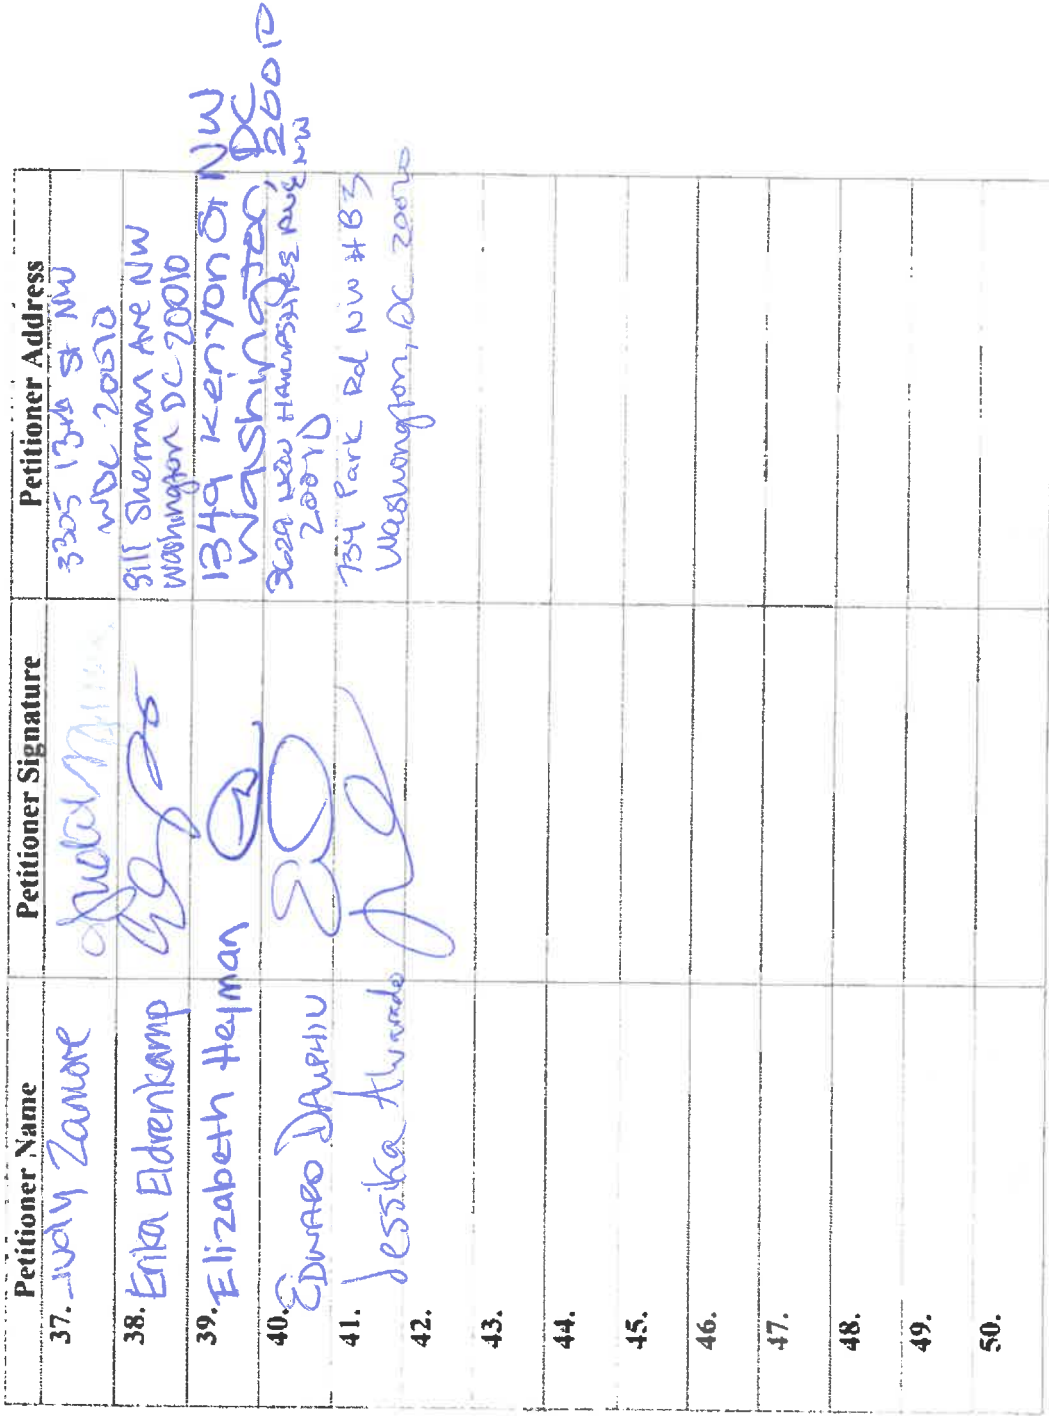 Petitioner Name Petitioner Signature Petitioner Address
37. Judy Zamore 3305 13th St NW
WDC 20010
38. Erika Eldrenkamp 3111 Sherman Ave NW
Washington DC 20010
39. Elizabeth Heyman 1349 Kenyon St NW
Washington DC 20010
40. EDWARD DAUPHIN 3629 NEW HAMPSHIRE AVE NW
20010
41. Jessika Alvarado 734 Park Rd NW # B3
Washington, DC 20010
42.
43.
44.
45.
46.
47.
48.
49.
50.